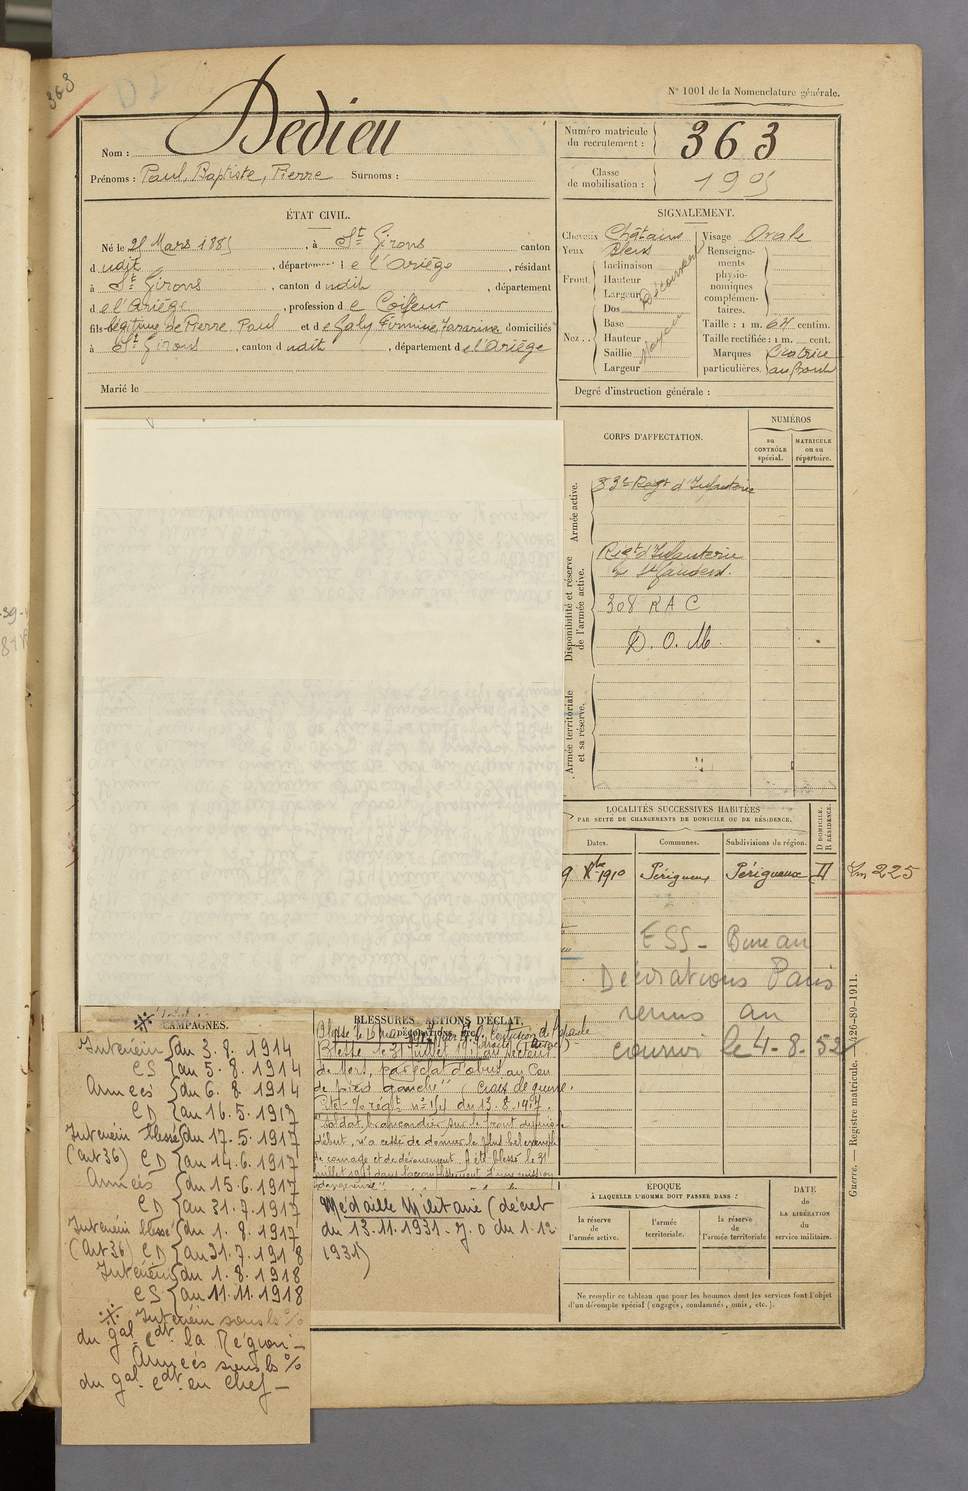 363
N° 1001 de la Nomenclature générale.
Nom : Dedieu
Prénoms : Paul, Baptiste, Pierre Surnoms :
Numéro matricule du recrutement : 363
Classe de mobilisation : 190
ÉTAT CIVIL.
Né le Mars 188 , à St Girons canton
d udit , département de l'Ariège , résidant
à St Girons , canton d udit , département
d el'Ariège , profession d e Coifeur
fils légitime de Pierre, Paul et d e Galy domiciliés
à St Girons , canton d udit , département d el'Ariège
Marié le
SIGNALEMENT.
Cheveux Châtains
Yeux Bleus
Front. Inclinaison
Hauteur
Largeur
Découvert
Nez. Dos
Base
Hauteur
Saillie
Largeur
Moyen
Visage Ovale
Renseignements physionomiques complémentaires.
Taille : 1 m. 67 centim.
Taille rectifiée : 1 m. cent.
Marques particulières. Cicatrice au front
Degré d'instruction générale :
CORPS D'AFFECTATION.
NUMÉROS
au CONTRÔLE spécial.
MATRICULE ou au répertoire.
Armée active.
83e Régt d'Infanterie
Disponibilité et réserve de l'armée active.
Régt d'Infanterie
de St Gaudens.
308 RAC
D. O. M.
Armée territoriale et sa réserve.
LOCALITÉS SUCCESSIVES HABITÉES
PAR SUITE DE CHANGEMENTS DE DOMICILE OU DE RÉSIDENCE.
Dates.
Communes.
Subdivisions de région.
D DOMICILE. R RÉSIDENCE.
9 Xbre 1910 Périgueux Périgueux
225
ESS - Bureau
Décorations Paris
remis au
courrier le 4-8-52
CAMPAGNES.
Intérieur du 3.8.1914
CS au 5.8.1914
Armées du 6.8.1914
CD au 16.5.1917
Intérieur blessé du 17.5.1917
(art 36) CD au 14.6.1917
Armées du 15.6.1917
CD au 31.7.1917
Intérieur blessé du 1.8.1917
(art 36) CD au 31.7.1918
Intérieur du 1.8.1918
CS au 11.11.1918
Intérieur sous les %
du gal cdt la Région -
Armées sous les %
du gal cdt en chef -
BLESSURES, ACTIONS D'ÉCLAT,
DÉCORATIONS, ETC.
Blessé le 16 mai
Blessé le 31 juillet au secteur
de par éclat d'obus au
de pied gauche" Croix de guerre.
Cité régt n° du 13.8.1917.
"Soldat brancardier sur le front depuis le
début, n'a cessé de donner le plus bel exemple
de courage et de dévouement. A été blessé le 31
juillet 1917 dans l'accomplissement d'une mission
dangereuse"
Médaille Militaire (décret
du 13.11.1931. J.O du 1.12
1931)
ÉPOQUE
À LAQUELLE L'HOMME DOIT PASSER DANS :
la réserve de l'armée active.
l'armée territoriale.
la réserve de l'armée territoriale
DATE de LA LIBÉRATION du service militaire.
Ne remplir ce tableau que pour les hommes dont les services font l'objet
d'un décompte spécial (engagés, condamnés, omis, etc.).
Guerre. — Registre matricule. — 426-89-1911.